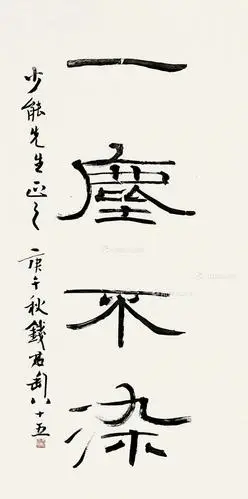 一塵不染
少能先生正之
庚午秋錢君匋八十五